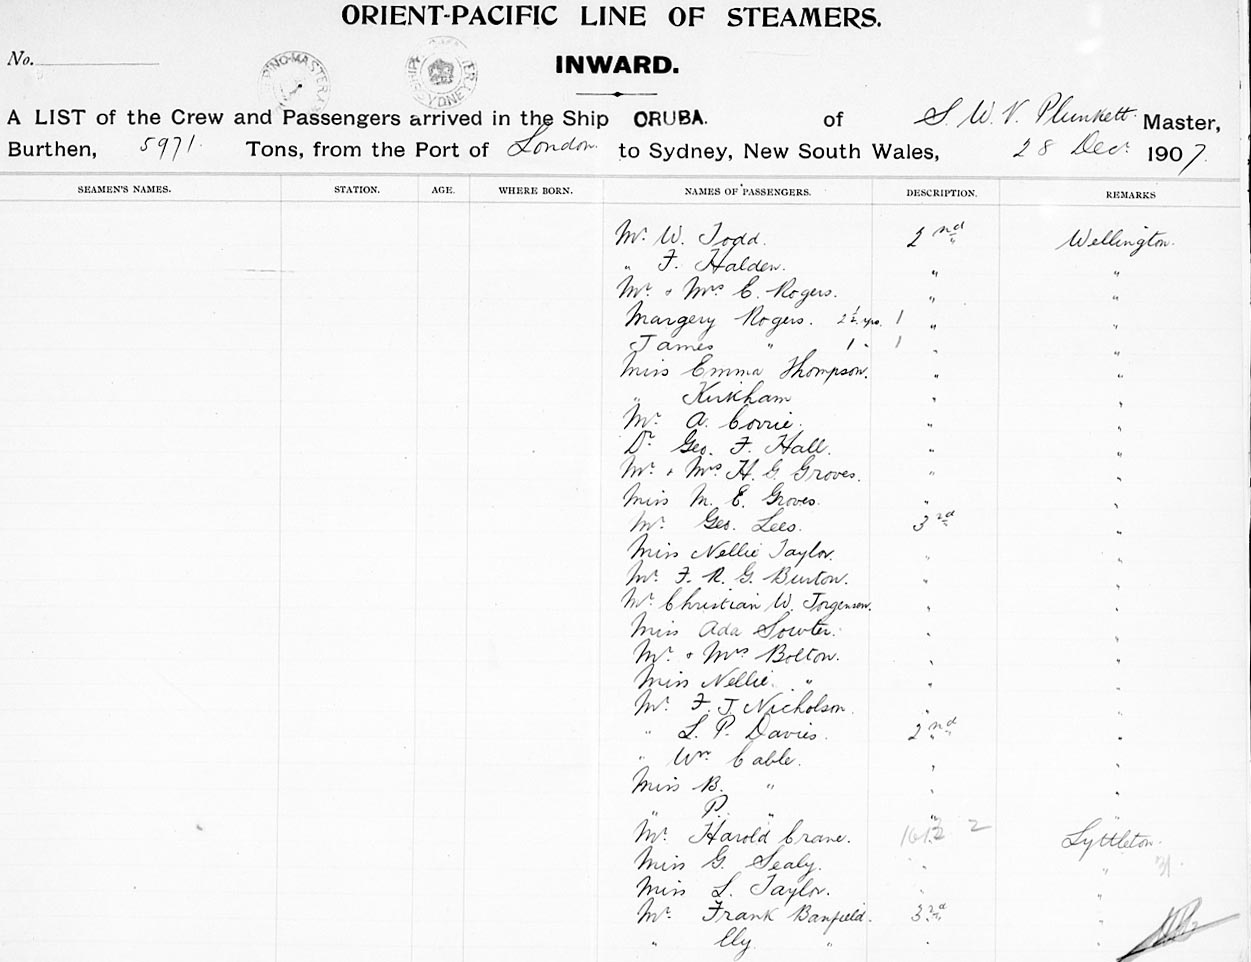 ORIENT-PACIFIC LINE OF STEAMERS.
No.
INWARD.
A LIST of the Crew and Passengers arrived in the Ship ORUBA. of S. W. V. Plunkett Master,
Burthen, 5971. Tons, from the Port of London. to Sydney, New South Wales, 28 Decr 1907.
SEAMEN'S NAMES. STATION. AGE. WHERE BORN. NAMES OF PASSENGERS. DESCRIPTION. REMARKS
Mr. W. Todd. 2nd Wellington.
" F. Halden. " "
Mr. & Mrs E. Rogers. " "
Margery Rogers. 2½ yrs. 1 " "
James " 1 " 1 " "
Miss Emma Thompson. " "
" Kirkham " "
Mr. A. Corrie. " "
Dr. Geo. F. Hall. " "
Mr. & Mrs H. G. Groves. " "
Miss M. E. Groves. " "
Mr. Geo. Lees. 3rd "
Miss Nellie Taylor. " "
Mr. F. R. G. Burton. " "
Mr. Christian W. Jorgenson. " "
Miss Ada Sowter. " "
Mr. & Mrs Bolton. " "
Miss Nellie " " "
Mr. F. J. Nicholson. " "
" L. P. Davies. 2nd "
" Wm. Cable. " "
Miss B. " " "
" P. " " "
Mr. Harold Crane. 2 Lyttleton.
Miss G. Sealy. " " 31.
Miss L. Taylor. " "
Mr. Frank Banfield. 3rd "
" Ely " " "